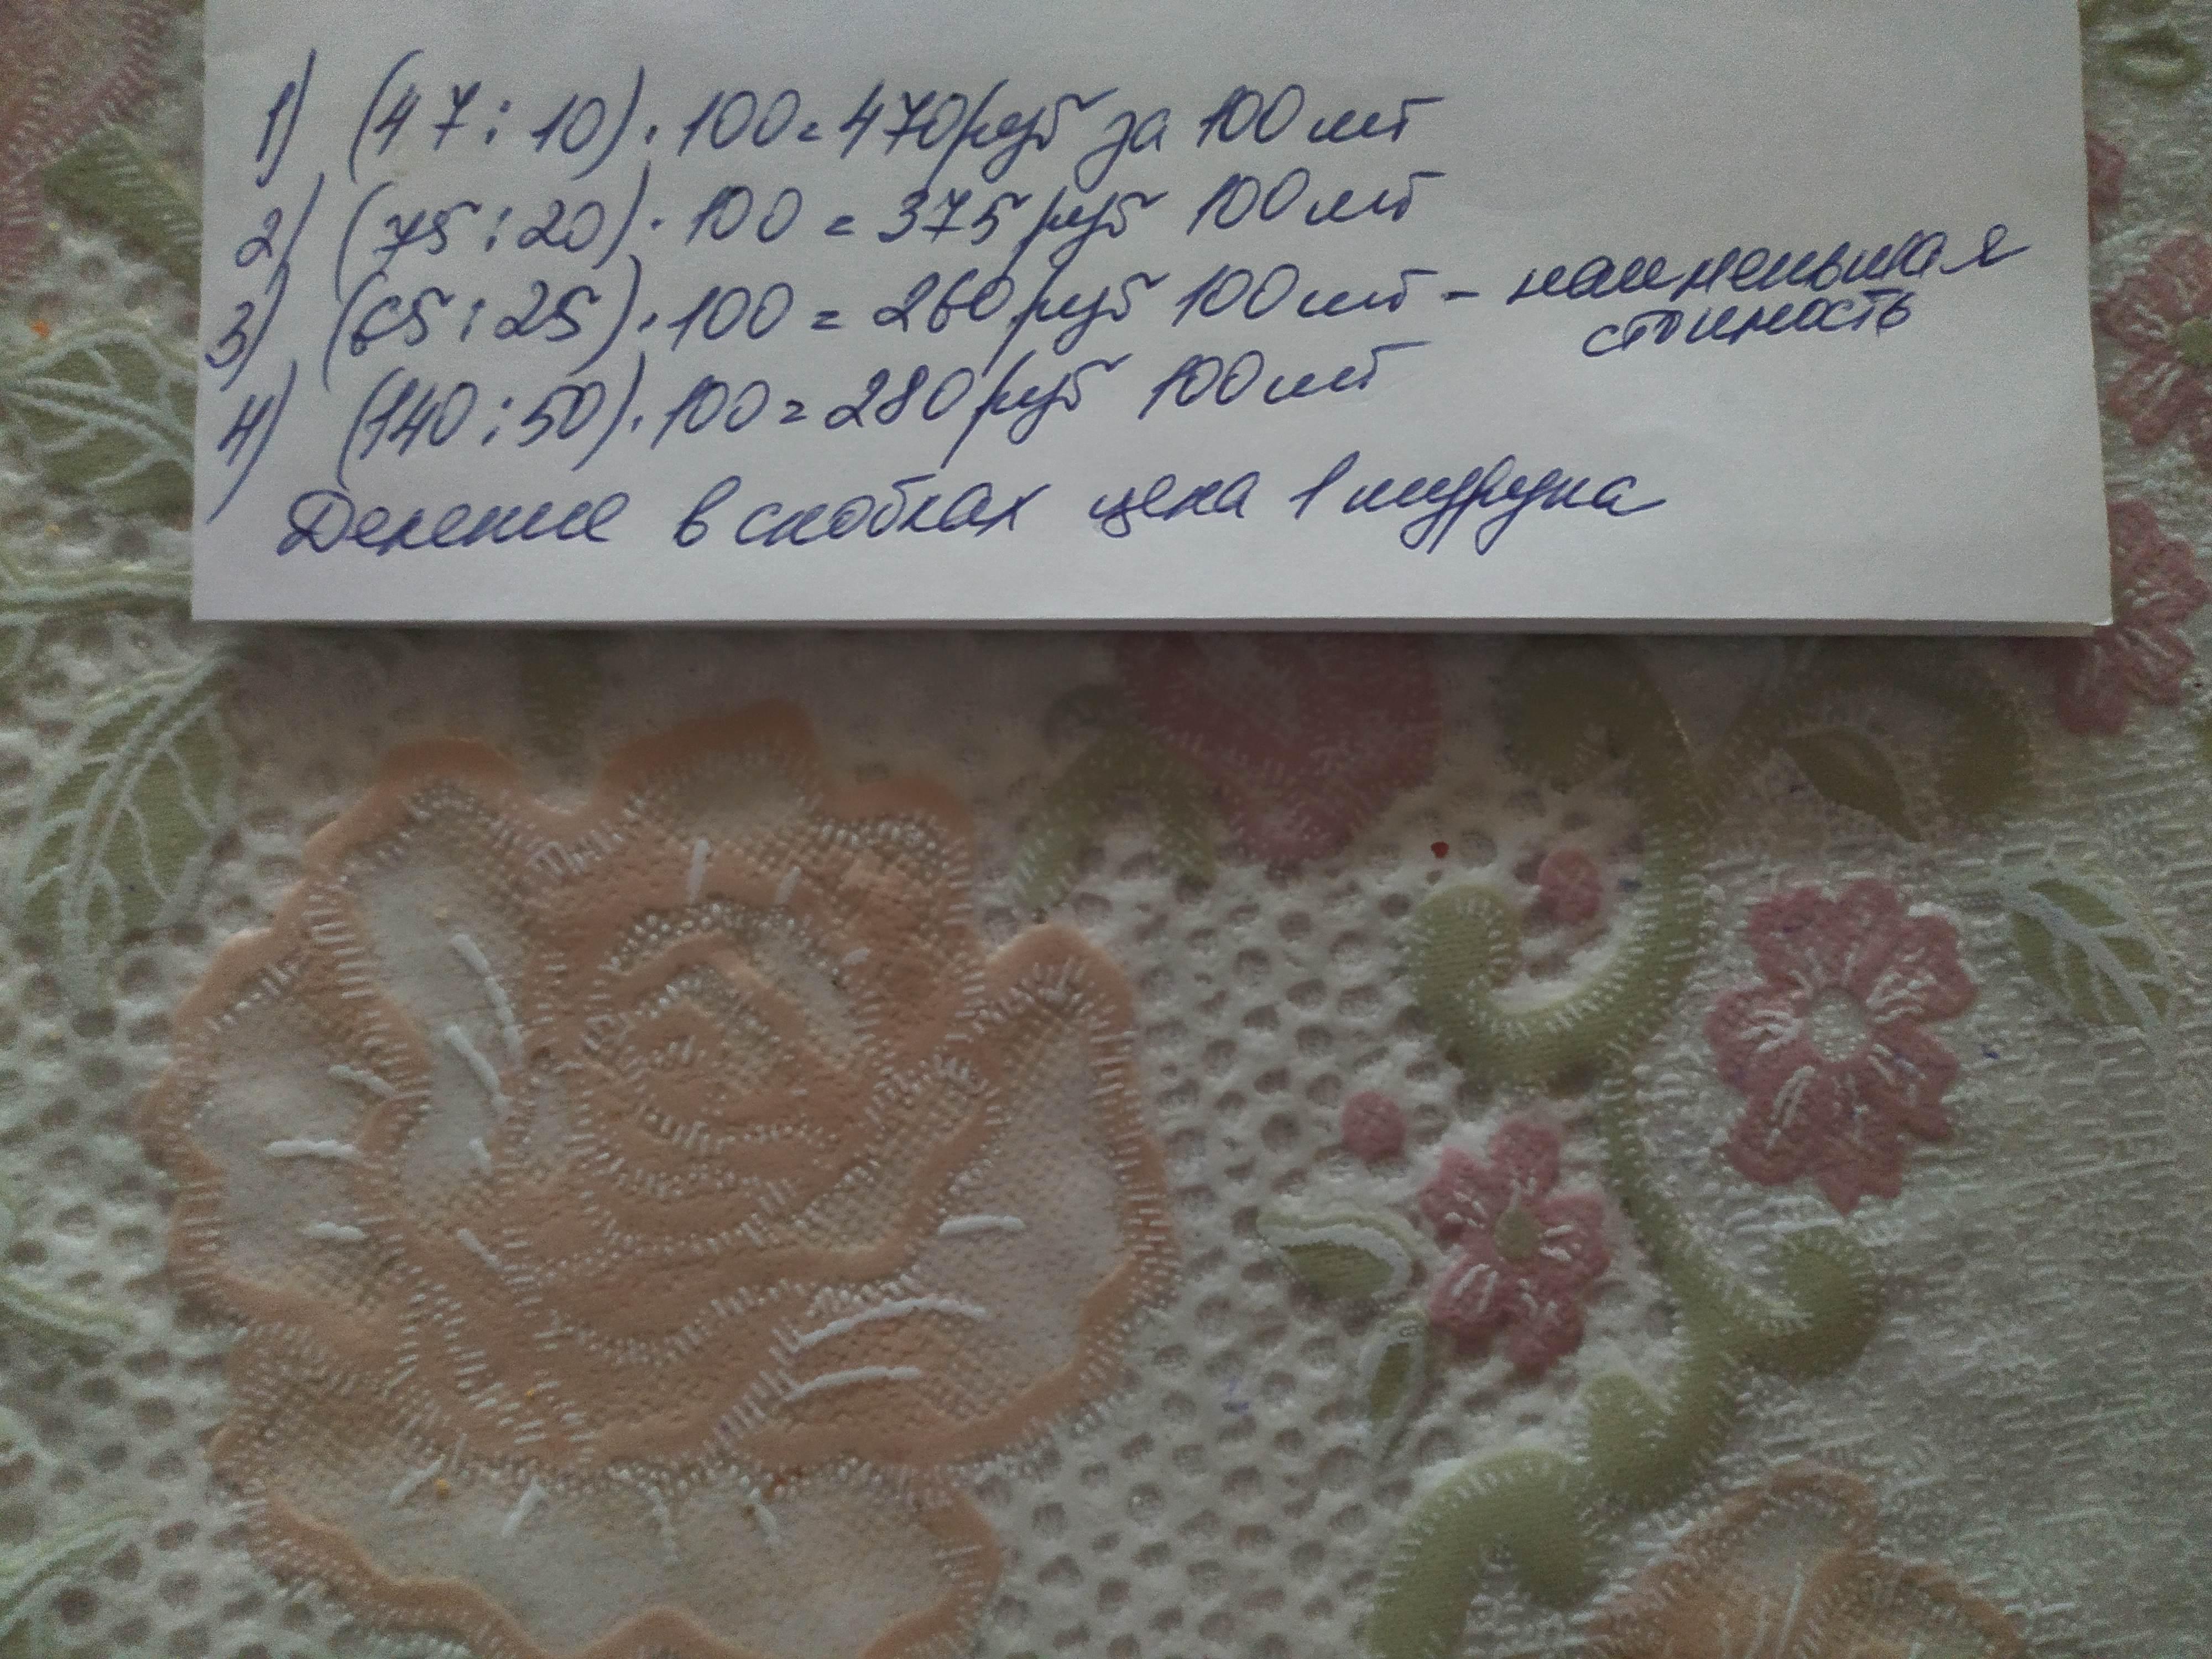 1) (47 : 10) · 100 = 470 руб за 100 шт
2) (75 : 20) · 100 = 375 руб 100 шт
3) (65 : 25) · 100 = 260 руб 100 шт - наименьшая
стоимость
4) (140 : 50) · 100 = 280 руб 100 шт
Деление в скобках цена 1 шурупа